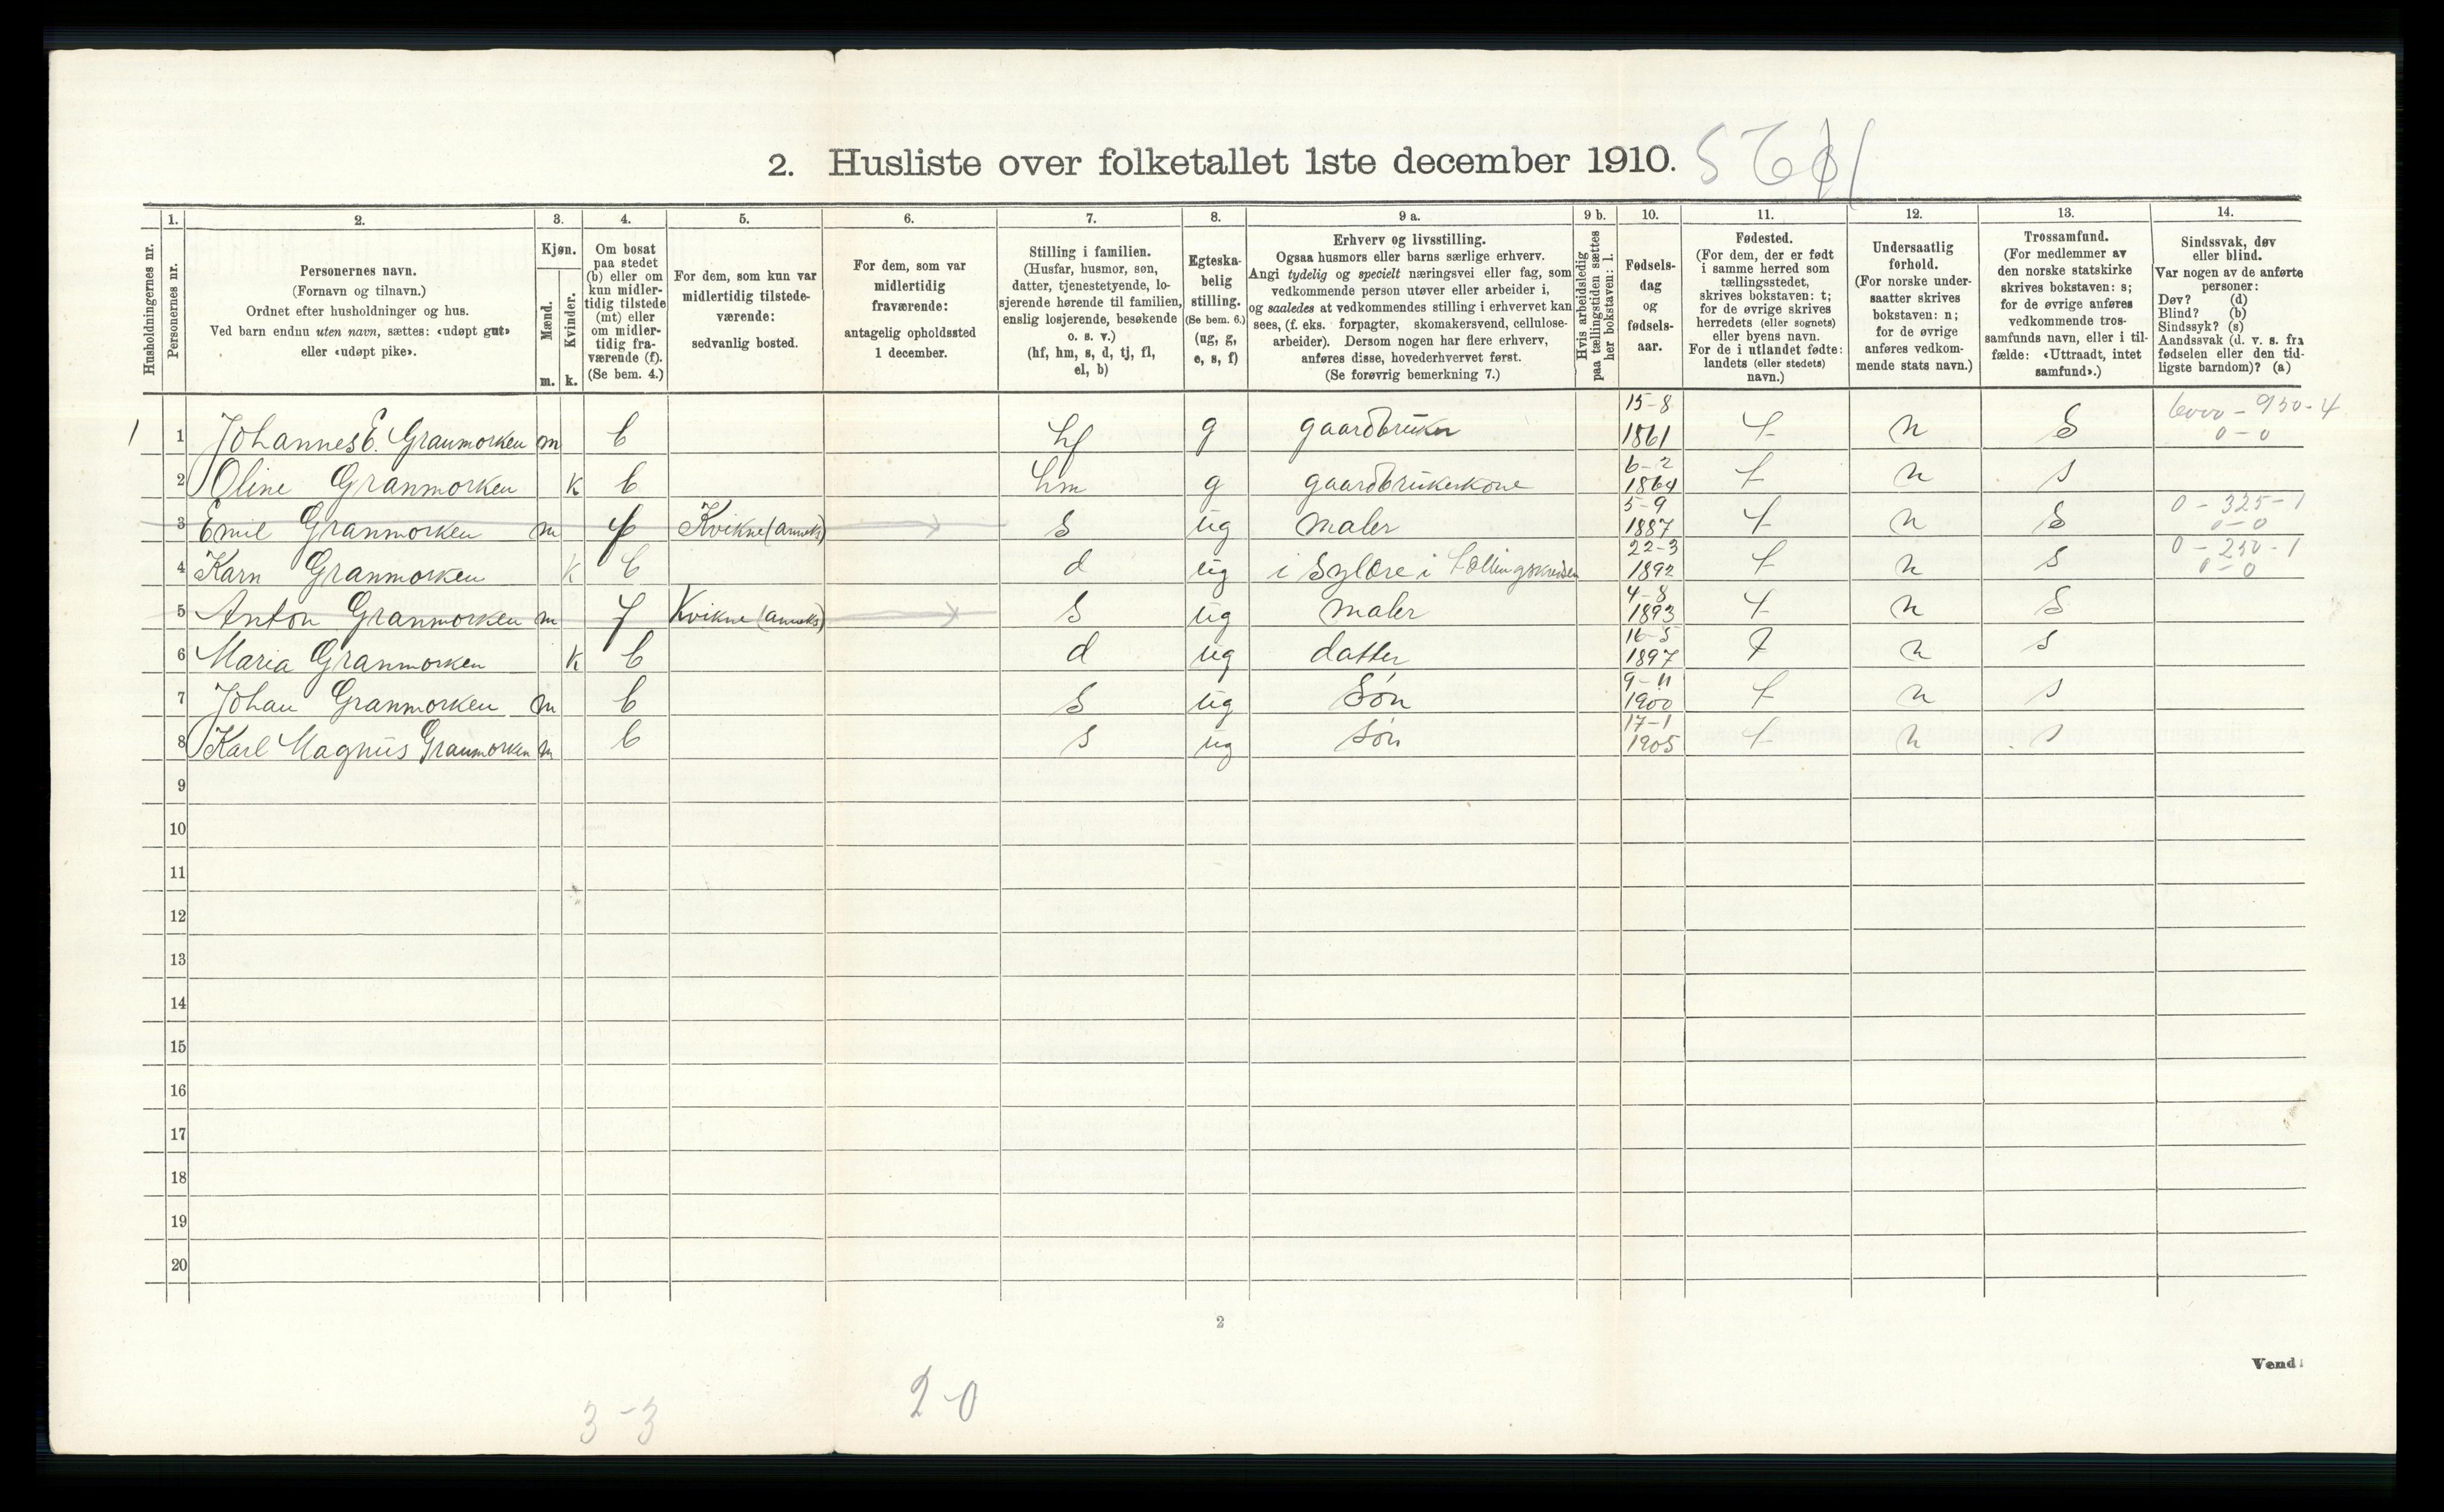 2. Husliste over folketallet 1ste december 1910.
Husholdningernes nr.
1.
Personernes nr.
2.
Personernes navn.
(Fornavn og tilnavn.)
Ordnet efter husholdninger og hus.
Ved barn endnu uten navn, sættes: «udøpt gut»
eller «udøpt pike».
3.
Kjøn.
Mænd.
Kvinder.
m. k.
4.
Om bosat
paa stedet
(b) eller om
kun midler-
tidig tilstede
(mt) eller
om midler-
tidig fra-
værende (f).
(Se bem. 4.)
5.
For dem, som kun var
midlertidig tilstede-
værende:
sedvanlig bosted.
6.
For dem, som var
midlertidig
fraværende:
antagelig opholdssted
1 december.
7.
Stilling i familien.
(Husfar, husmor, søn,
datter, tjenestetyende, lo-
sjerende hørende til familien,
enslig losjerende, besøkende
o. s. v.)
(hf, hm, s, d, tj, fl,
el, b)
8.
Egteska-
belig
stilling.
(Se bem. 6.)
(ug, g,
e, s, f)
9 a.
Erhverv og livsstilling.
Ogsaa husmors eller barns særlige erhverv.
Angi tydelig og specielt næringsvei eller fag, som
vedkommende person utøver eller arbeider i,
og saaledes at vedkommendes stilling i erhvervet kan
sees, (f. eks. forpagter, skomakersvend, cellulose-
arbeider). Dersom nogen har flere erhverv,
anføres disse, hovederhvervet først.
(Se forøvrig bemerkning 7.)
9 b.
Hvis arbeidsledig
paa tællingstiden sættes
her bokstaven: l.
10.
Fødsels-
dag
og
fødsels-
aar.
11.
Fødested.
(For dem, der er født
i samme herred som
tællingsstedet,
skrives bokstaven: t;
for de øvrige skrives
herredets (eller sognets)
eller byens navn.
For de i utlandet fødte:
landets (eller stedets)
navn.)
12.
Undersaatlig
forhold.
(For norske under-
saatter skrives
bokstaven: n;
for de øvrige
anføres vedkom-
mende stats navn.)
13.
Trossamfund.
(For medlemmer av
den norske statskirke
skrives bokstaven: s;
for de øvrige anføres
vedkommende tros-
samfunds navn, eller i til-
fælde: «Uttraadt, intet
samfund».)
14.
Sindssvak, døv
eller blind.
Var nogen av de anførte
personer:
Døv? (d)
Blind? (b)
Sindssyk? (s)
Aandssvak (d. v. s. fra
fødselen eller den tid-
ligste barndom)? (a)
1 1 Johannes E. Granmorken m b hf g gaardbruker 15-8 1861 t n s 6000-950-4 0-0
2 Oline Granmorken k b hm g gaardbrukerkone 6-2 1864 t n s
3 Emil Granmorken m f Kvikne (anneks) s ug maler 5-9 1887 t n s 0-325-1 0-0
4 Karn Granmorken k b d ug i sylære i tællingskredsen 22-3 1892 t n s 0-250-1 0-0
5 Anton Granmorken m f Kvikne (anneks) s ug maler 4-8 1893 t n s
6 Maria Granmorken k b d ug datter 16-5 1897 t n s
7 Johan Granmorken m b s ug Søn 9-11 1900 t n s
8 Karl Magnus Granmorken m b s ug søn 17-1 1905 t n s
9
10
11
12
13
14
15
16
17
18
19
20
2
Vend!
3-3 2-0